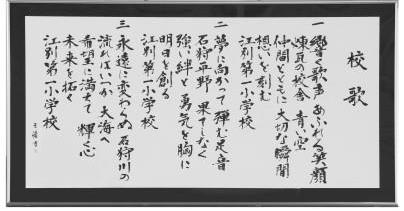 校歌
一 響く歌声 あふれる笑顔
煉瓦の校舎 青い空
仲間とともに 大切な瞬間
想いを刻む
江別第一小学校
二 夢に向かって 弾む足音
石狩平野 果てしなく
強い絆と勇気を胸に
明日を創る
江別第一小学校
三 永遠に変わらぬ石狩川の
流れはいつか 大海へ
希望に満ちて 輝く心
未来を拓く
江別第一小学校